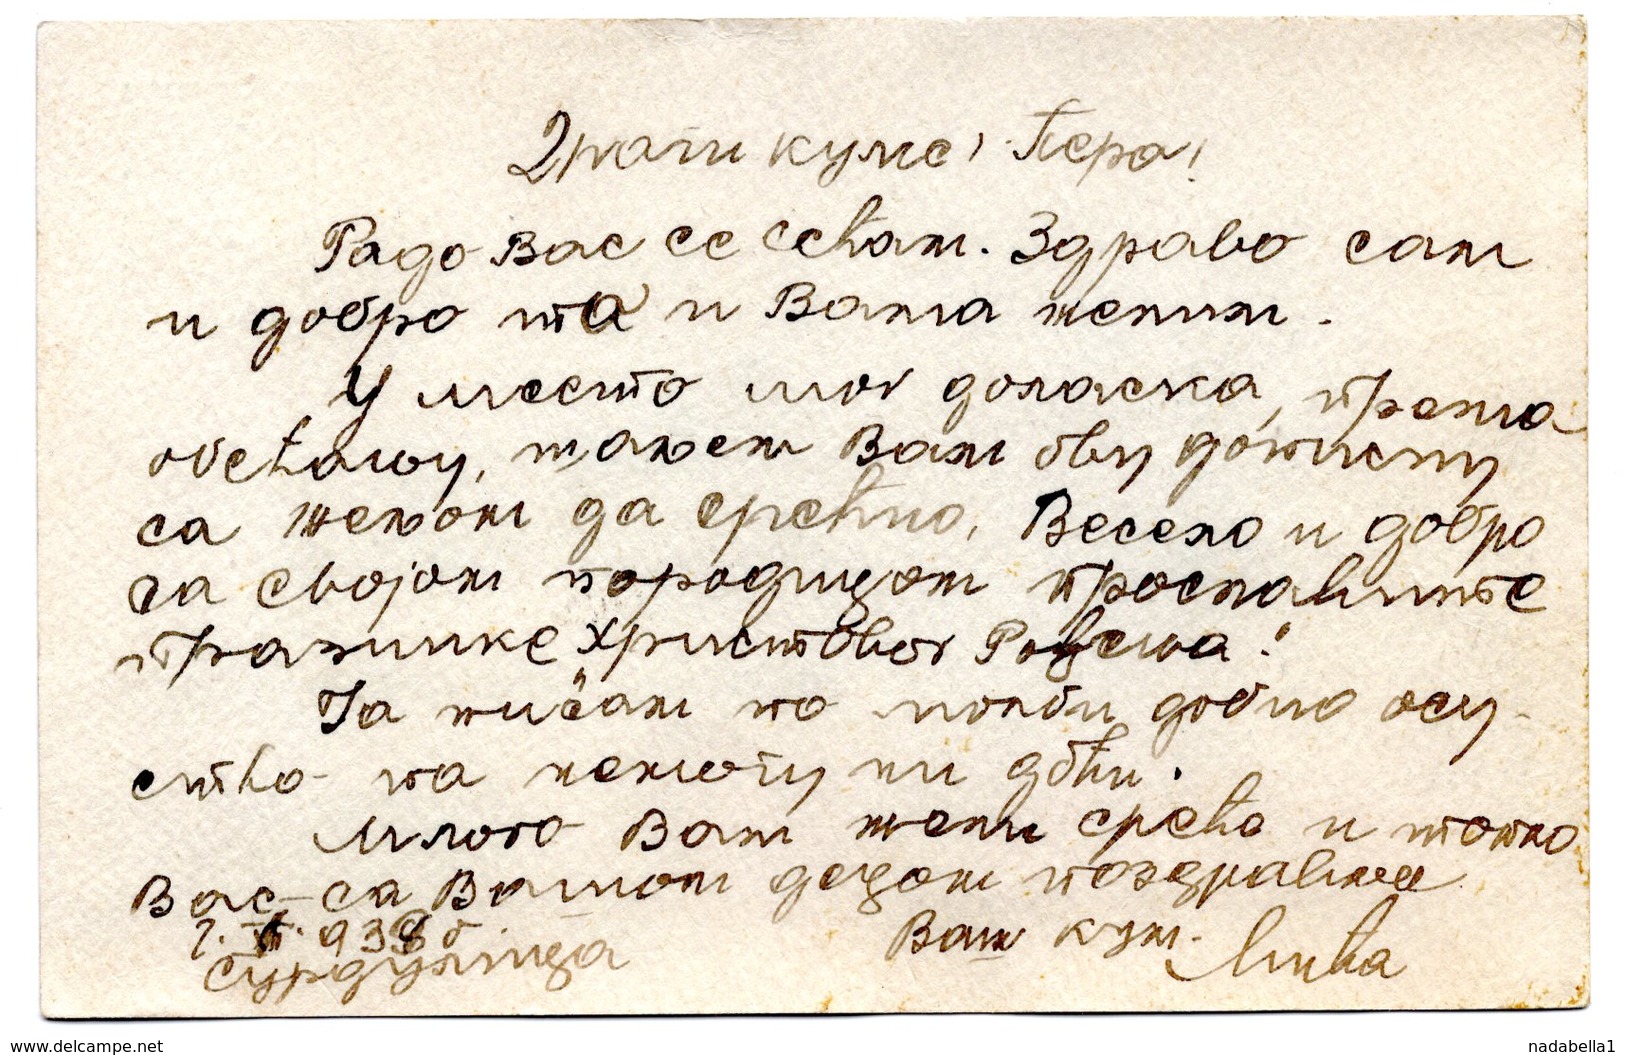 Драги куме, Пера!
Радо Вас се сећам. Здраво сам
и добро та и Вама желим.
У место мог доласка, према
обећању, шаљем Вам ову дописну
са жељом да срећно, Весело и добро
са својом породицом прославите
празнике Христовог Рођења!
Ја писам по добио осу-
ство па немогу ни доћи.
Много Вам желим среће и топло
Вас са Вашом децом поздравља
7. 938 г Ваш кум
Сурдулица
www.delcampe.net
nadabella1